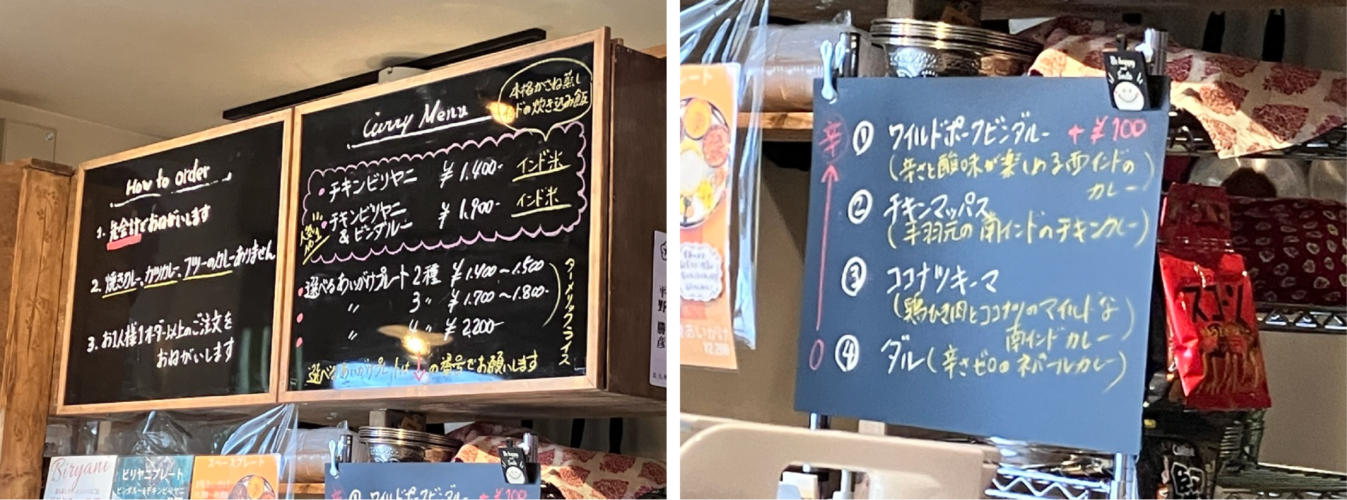 How to order
1. 先会計でおねがいします
2. 焼きカレー、カツカレー、フツーのカレーありません
3. お1人様1オーダー以上のご注文を
おねがいします
Curry Menu
本格かさね蒸し
インドの炊き込み飯
・チキンビリヤニ ¥1.400- インド米
人気No.1
・チキンビリヤニ
& ビンダルー ¥1.900- インド米
・選べるあいがけプレート 2種 ¥1.400-1.500
・ 〃 3〃 ¥1.700〜1.800-
・ 〃 4〃 ¥2.200-
ターメリックライス
選べるあいがけプレートは↓の番号でお願いします
Biryani
ビリヤニプレート
ビンダルー&チキンビリヤニ
スペースプレート
辛 ① ワイルドポークビンダルー +¥100
Be happy
Smile
辛 ① ワイルドポークビンダルー +¥100
(辛さと酸味が楽しめる西インドの
カレー)
② チキンマッパス
(手羽元の南インドのチキンカレー)
③ ココナツキーマ
(鶏ひき肉とココナツのマイルドな
南インドカレー)
0 ④ ダル(辛さゼロのネパールカレー)
あいがけ
¥2,200